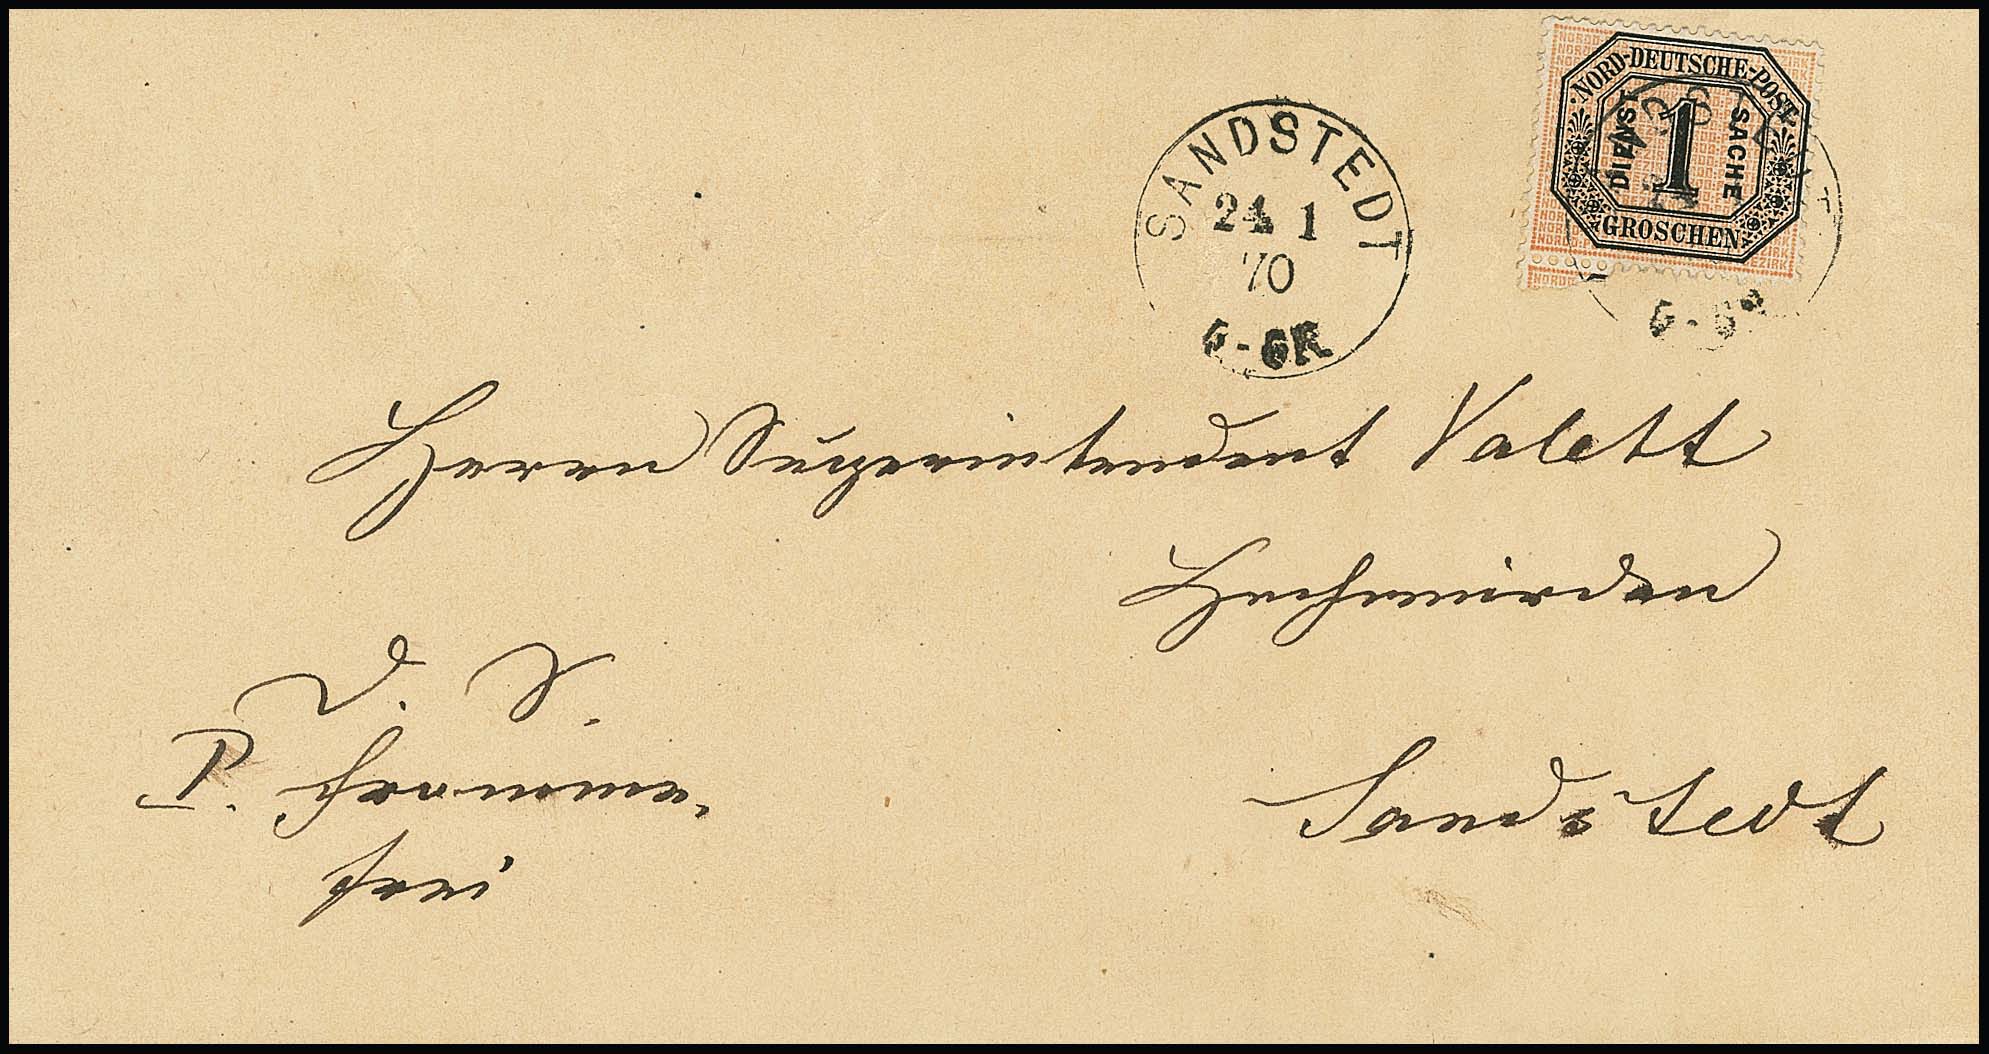 NORD-DEUTSCHE-POST
DIENST 1 SACHE
GROSCHEN
SANDSTEDT
24 1
70
5-6 N
Herrn Superintendent Valett
Hochwürden
D. S.
P. Fromme.
frei
Sandstedt